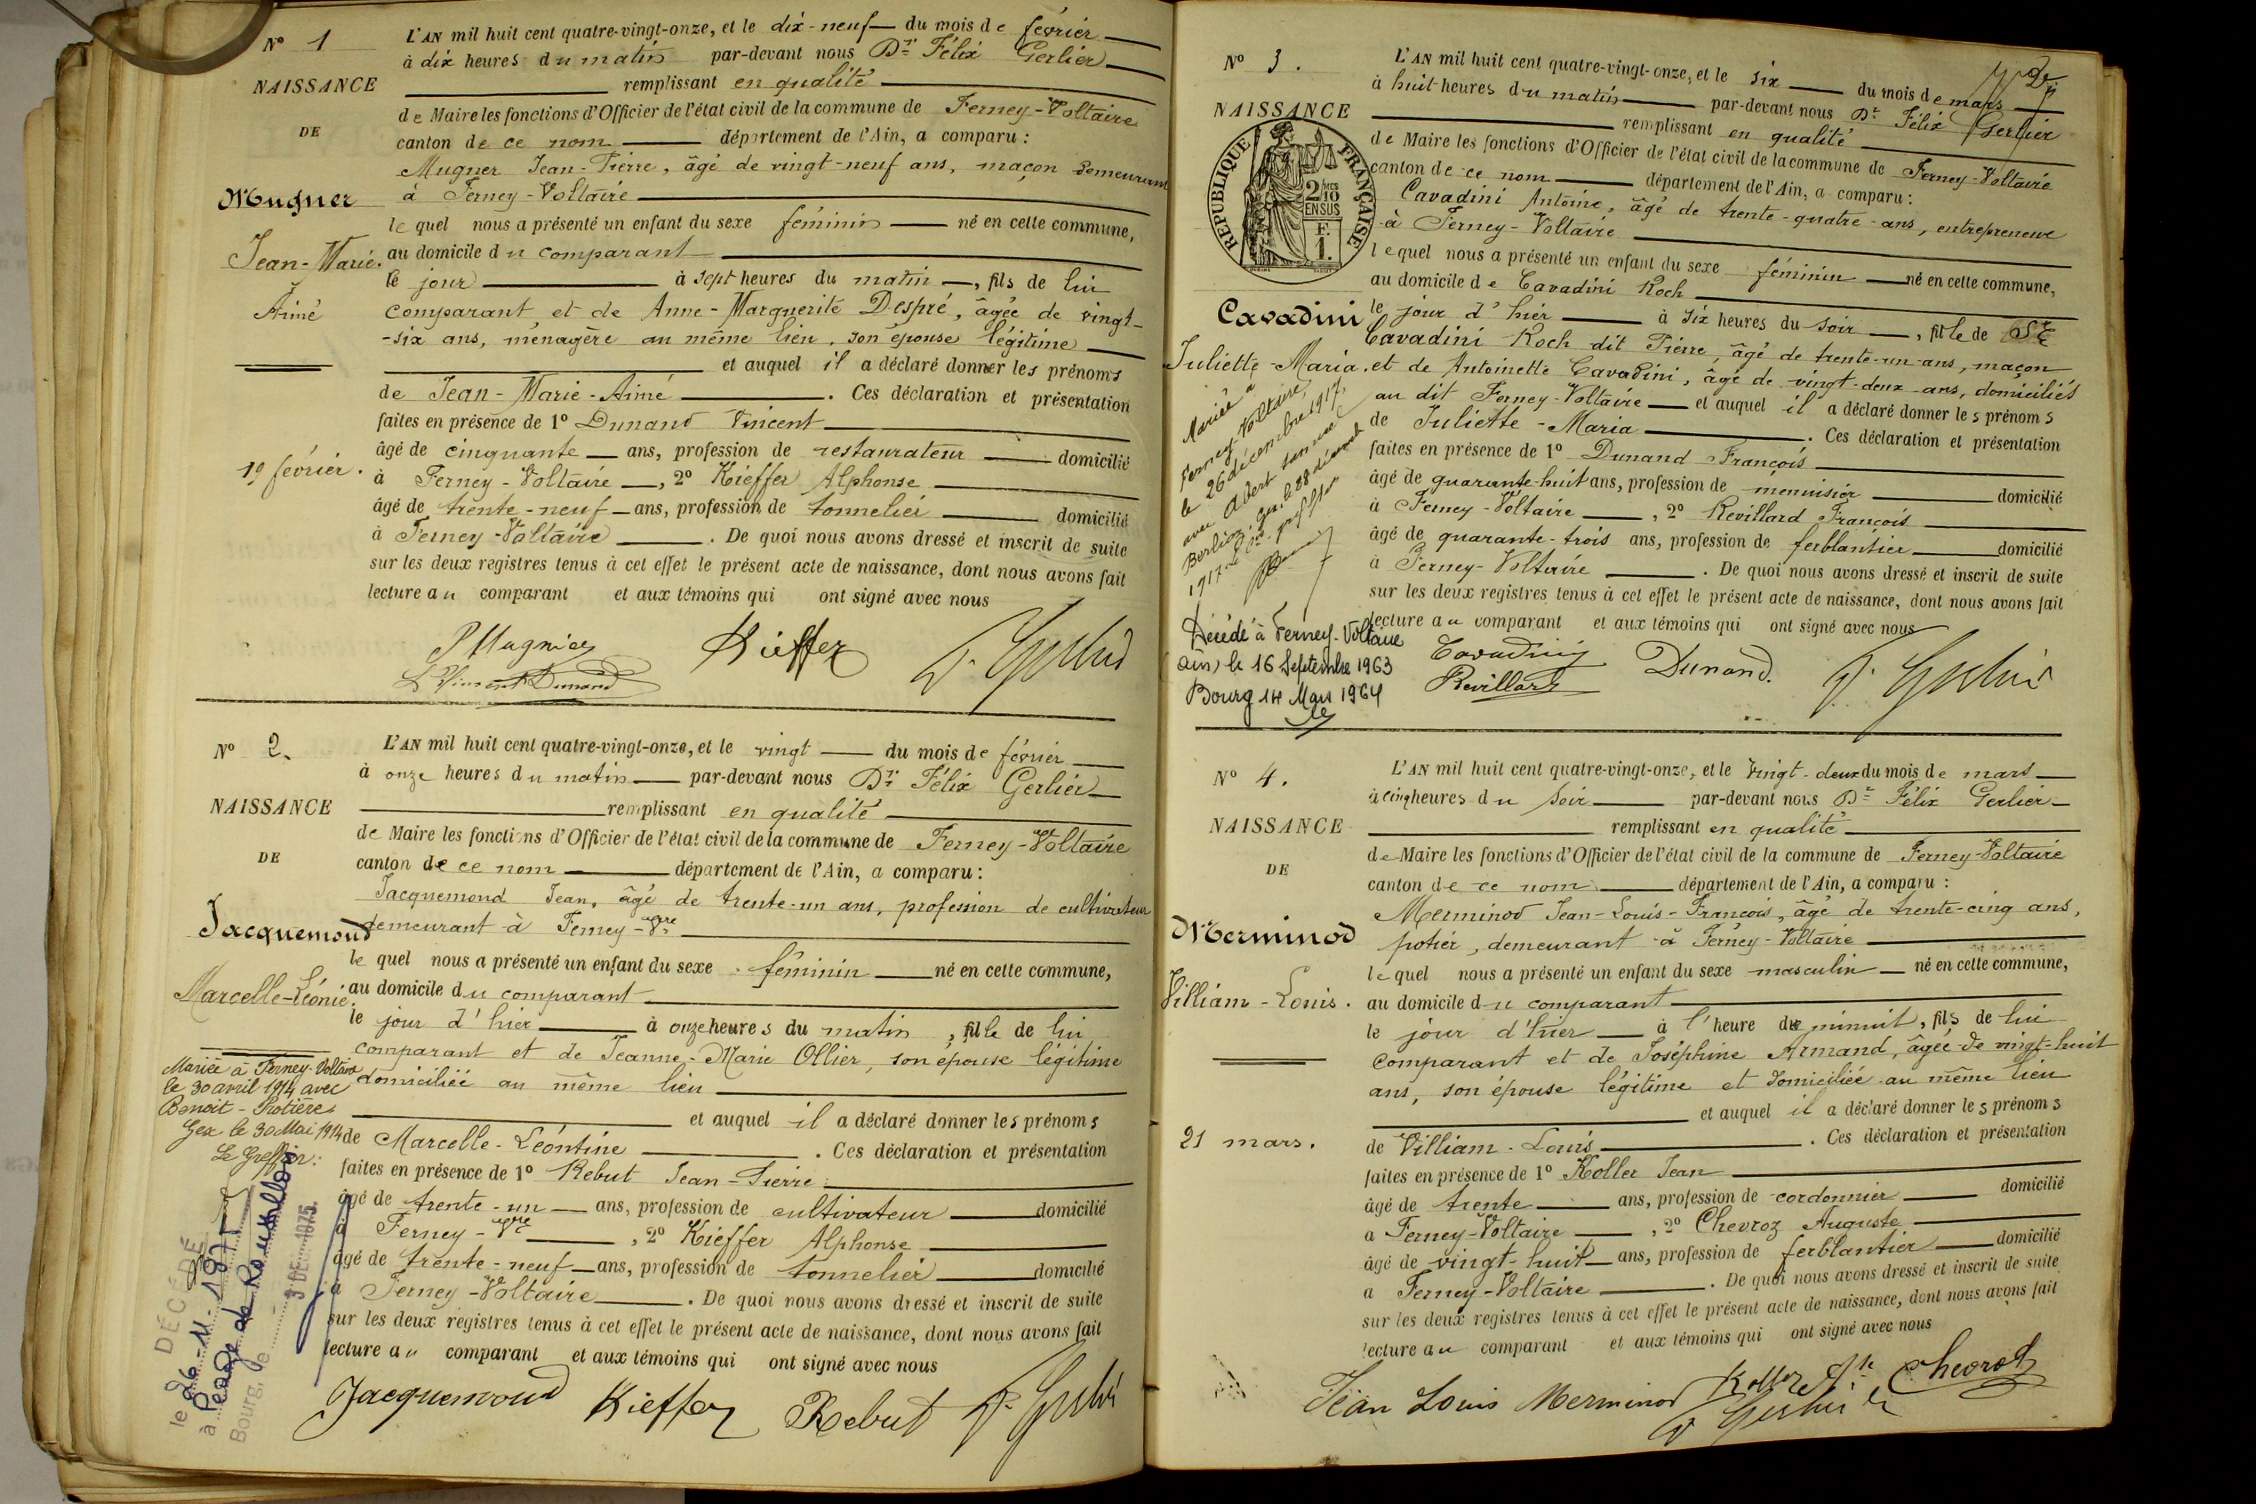 N° 1
NAISSANCE
DE
Mugner
Jean-Marie-
Aimé
19 février.
L'AN mil huit cent quatre-vingt-onze, et le dix-neuf du mois de février
à dix heures du matin par-devant nous Dr Félix Gerlier
remplissant en qualité
de Maire les fonctions d'Officier de l'état civil de la commune de Ferney-Voltaire
canton de ce nom département de l'Ain, a comparu :
Mugner Jean-Pierre, âgé de vingt-neuf ans, maçon demeurant
à Ferney-Voltaire
lequel nous a présenté un enfant du sexe féminin né en cette commune,
au domicile du comparant
le jour à sept heures du matin, fils de lui
comparant et de Anne-Marguerite Despré, âgée de vingt-
-six ans, ménagère au même lieu, son épouse légitime
et auquel il a déclaré donner les prénoms
de Jean-Marie-Aimé. Ces déclaration et présentation
faites en présence de 1° Dunand Vincent
âgé de cinquante ans, profession de restaurateur domicilié
à Ferney-Voltaire, 2° Kieffer Alphonse
âgé de trente-neuf ans, profession de tonnelier domicilié
à Ferney-Voltaire. De quoi nous avons dressé et inscrit de suite
sur les deux registres tenus à cet effet le présent acte de naissance, dont nous avons fait
lecture au comparant et aux témoins qui ont signé avec nous
P Mugnier Kieffer Dr Gerlier
Vincent Dunand
N° 2.
NAISSANCE
DE
Jacquemond
Marcelle-Léonie.
Mariée à Ferney-Voltaire
le 30 avril 1914 avec
Benoit-Protière
Gex le 30 Mai 1914
Le Greffier :
DÉCÉDÉ
le 26-11-1975
à Péage de Roussillon
Bourg, le 3 DEC. 1975
L'AN mil huit cent quatre-vingt-onze, et le vingt du mois de février
à onze heures du matin par-devant nous Dr Félix Gerlier
remplissant en qualité
de Maire les fonctions d'Officier de l'état civil de la commune de Ferney-Voltaire
canton de ce nom département de l'Ain, a comparu :
Jacquemond Jean, âgé de trente-un ans, profession de cultivateur
demeurant à Ferney-Vre
lequel nous a présenté un enfant du sexe féminin né en cette commune,
au domicile du comparant
le jour d'hier à onze heures du matin, fille de lui
comparant et de Jeanne-Marie Ollier, son épouse légitime
domiciliée au même lieu
et auquel il a déclaré donner les prénoms
de Marcelle-Léontine. Ces déclaration et présentation
faites en présence de 1° Rebut Jean-Pierre
âgé de trente-un ans, profession de cultivateur domicilié
à Ferney-Vre, 2° Kieffer Alphonse
âgé de trente-neuf ans, profession de tonnelier domicilié
à Ferney-Voltaire. De quoi nous avons dressé et inscrit de suite
sur les deux registres tenus à cet effet le présent acte de naissance, dont nous avons fait
lecture au comparant et aux témoins qui ont signé avec nous
Jacquemoud Kieffer Rebut Dr Gerlier
N° 3.
NAISSANCE
RÉPUBLIQUE FRANÇAISE
2/10 EN SUS
Cavadini
Juliette-Maria.
Mariée à
Ferney-Voltaire,
le 26 décembre 1917,
avec Albert Samuel
Berlioz. Gex, le 28 décembre
1917. Le greffier
Décédé à Ferney-Voltaire
(Ain) le 16 Septembre 1963
Bourg 14 Mars 1964
L'AN mil huit cent quatre-vingt-onze, et le six du mois de mars
à huit heures du matin par-devant nous Dr Félix Gerlier
remplissant en qualité
de Maire les fonctions d'Officier de l'état civil de la commune de Ferney-Voltaire
canton de ce nom département de l'Ain, a comparu :
Cavadini Antoine, âgé de trente-quatre ans, entrepreneur
à Ferney-Voltaire
lequel nous a présenté un enfant du sexe féminin né en cette commune,
au domicile de Cavadini Roch
le jour d'hier à six heures du soir, fille de
Cavadini Roch dit Pierre, âgé de trente-un ans, maçon
et de Antoinette Cavadini, âgée de vingt-deux ans, domiciliés
au dit Ferney-Voltaire et auquel il a déclaré donner les prénoms
de Juliette-Maria. Ces déclaration et présentation
faites en présence de 1° Dunand François
âgé de quarante-huit ans, profession de menuisier domicilié
à Ferney-Voltaire, 2° Revillard François
âgé de quarante-trois ans, profession de ferblantier domicilié
à Ferney-Voltaire. De quoi nous avons dressé et inscrit de suite
sur les deux registres tenus à cet effet le présent acte de naissance, dont nous avons fait
lecture au comparant et aux témoins qui ont signé avec nous
Cavadini Dunand. Dr Gerlier
Revillard
N° 4.
NAISSANCE
DE
Merminod
Villiam-Louis.
21 mars.
L'AN mil huit cent quatre-vingt-onze, et le vingt-deux du mois de mars
à cinq heures du soir par-devant nous Dr Félix Gerlier
remplissant en qualité
de Maire les fonctions d'Officier de l'état civil de la commune de Ferney-Voltaire
canton de ce nom département de l'Ain, a comparu :
Merminod Jean-Louis-François, âgé de trente-cinq ans,
potier, demeurant à Ferney-Voltaire
lequel nous a présenté un enfant du sexe masculin né en cette commune,
au domicile du comparant
le jour d'hier à l'heure de minuit, fils de lui
comparant et de Joséphine Armand, âgée de vingt-huit
ans, son épouse légitime et domiciliée au même lieu
et auquel il a déclaré donner les prénoms
de Villiam-Louis. Ces déclaration et présentation
faites en présence de 1° Koller Jean
âgé de trente ans, profession de cordonnier domicilié
à Ferney-Voltaire, 2° Chevroz Auguste
âgé de vingt-huit ans, profession de ferblantier domicilié
à Ferney-Voltaire. De quoi nous avons dressé et inscrit de suite
sur les deux registres tenus à cet effet le présent acte de naissance, dont nous avons fait
lecture au comparant et aux témoins qui ont signé avec nous
Jean Louis Merminod Koller Ate Chevrot
Dr Gerlier